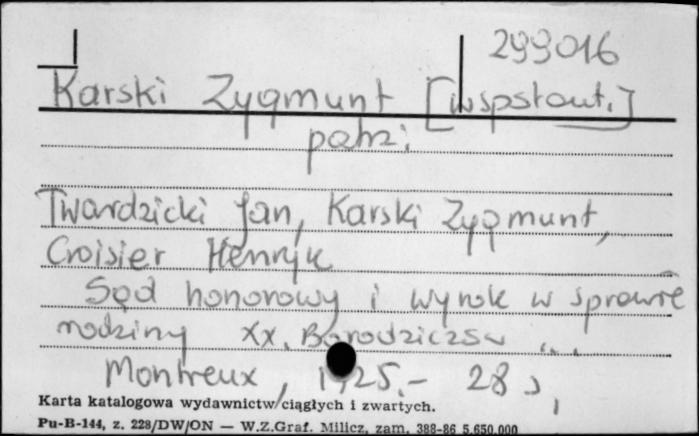 299016
Karski Zygmunt [współaut.]
patrz:
Twardzicki Jan, Karski Zygmunt,
Croisier Henryk
Sąd honorowy i wyrok w sprawie
rodziny XX. Borodziczów ...
Montreux, 1925.- 28 s,
Karta katalogowa wydawnictw ciągłych i zwartych.
Pu-B-144, z. 228/DW/ON — W.Z.Graf. Milicz, zam. 388-86 5.650.000